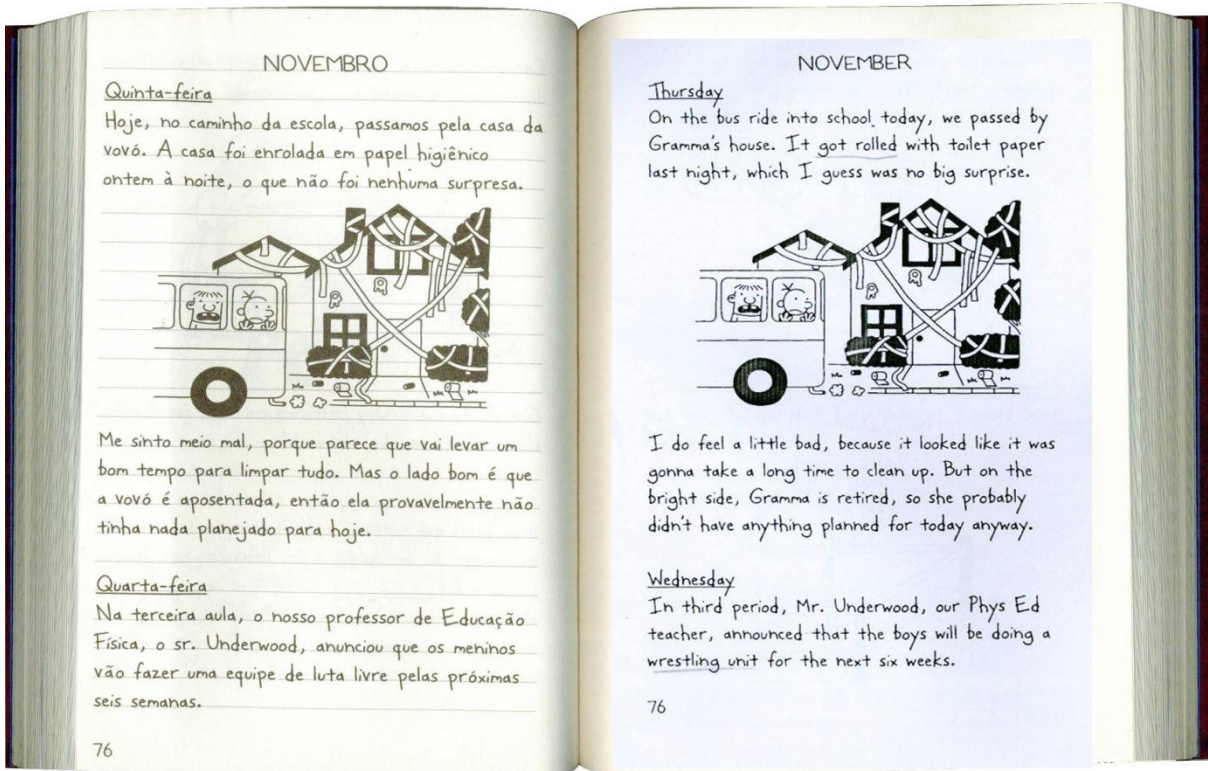 NOVEMBRO
Quinta-feira
Hoje, no caminho da escola, passamos pela casa da
vovó. A casa foi enrolada em papel higiênico
ontem à noite, o que não foi nenhuma surpresa.
Me sinto meio mal, porque parece que vai levar um
bom tempo para limpar tudo. Mas o lado bom é que
a vovó é aposentada, então ela provavelmente não
tinha nada planejado para hoje.
Quarta-feira
Na terceira aula, o nosso professor de Educação
Física, o sr. Underwood, anunciou que os meninos
vão fazer uma equipe de luta livre pelas próximas
seis semanas.
76
NOVEMBER
Thursday
On the bus ride into school today, we passed by
Gramma's house. It got rolled with toilet paper
last night, which I guess was no big surprise.
I do feel a little bad, because it looked like it was
gonna take a long time to clean up. But on the
bright side, Gramma is retired, so she probably
didn't have anything planned for today anyway.
Wednesday
In third period, Mr. Underwood, our Phys Ed
teacher, announced that the boys will be doing a
wrestling unit for the next six weeks.
76